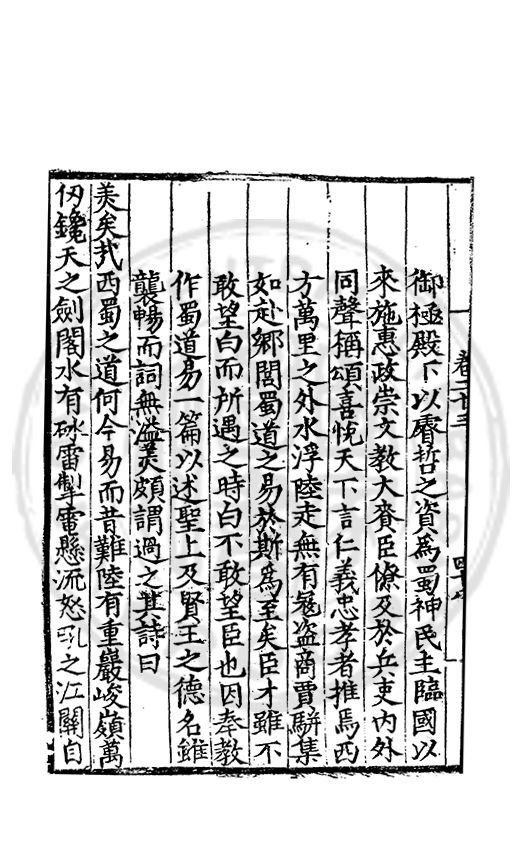 卷二十三
御極殿下以睿哲之資爲蜀神民主臨國以
來施惠政崇文教大賚臣僚及於兵吏内外
同聲稱頌喜悅天下言仁義忠孝者推焉西
方萬里之外水浮陸走無有冦盗商賈駢集
如赴鄉閭蜀道之易於斯爲至矣臣才雖不
敢望白而所遇之時白不敢望臣也因奉教
作蜀道易一篇以述聖上及賢王之德名雖
襲暢而詞無溢美頗謂過之其詩曰
美矣哉西蜀之道何今易而昔難陸有重巖峻嶺萬
仞鑱天之劍閣水有砯雷掣電懸流怒吼之江關自